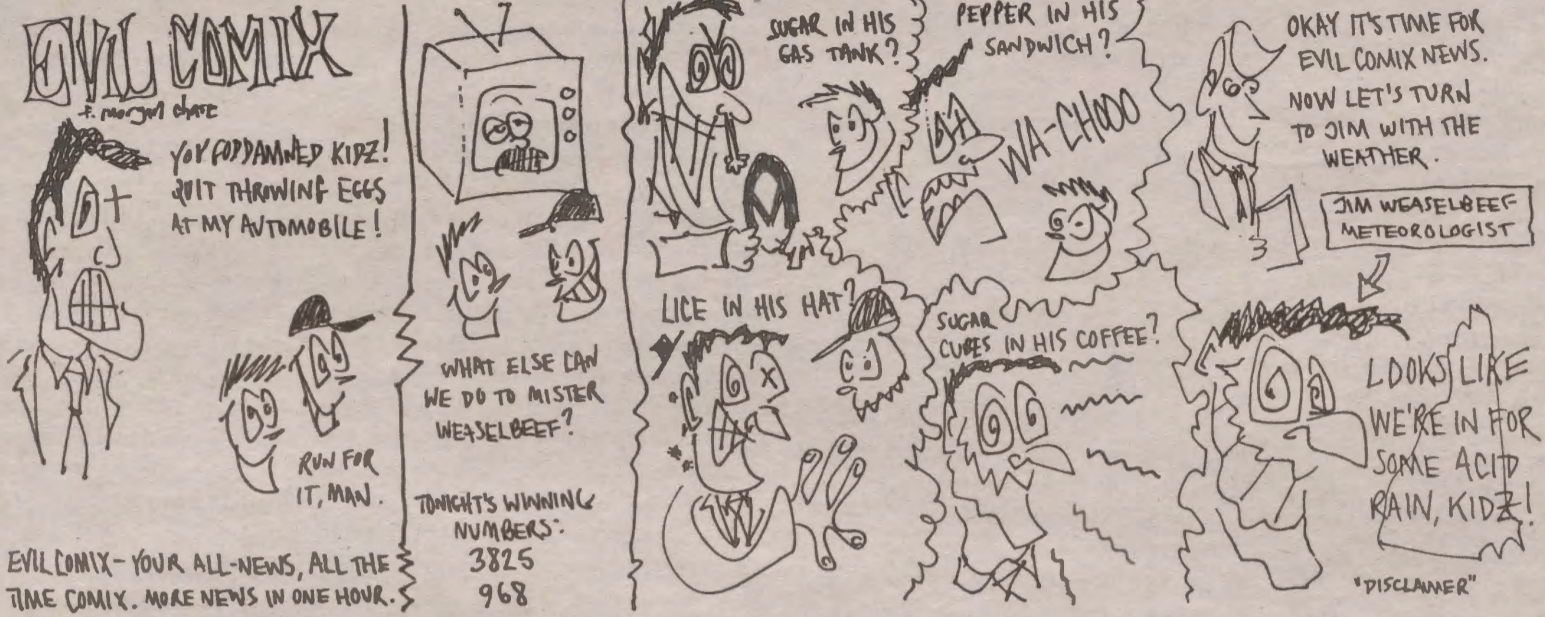 EVIL COMIX
F. morgan chase
YOU GODDAMNED KIDZ!
QUIT THROWING EGGS
AT MY AUTOMOBILE!
RUN FOR
IT, MAN.
EVIL COMIX- YOUR ALL-NEWS, ALL THE
TIME COMIX. MORE NEWS IN ONE HOUR.
WHAT ELSE CAN
WE DO TO MISTER
WEASELBEEF?
TONIGHT'S WINNING
NUMBERS:
3825
968
SUGAR IN HIS
GAS TANK?
PEPPER IN HIS
SANDWICH?
WA-CHOOO
LICE IN HIS HAT?
SUGAR
CUBES IN HIS COFFEE?
OKAY IT'S TIME FOR
EVIL COMIX NEWS.
NOW LET'S TURN
TO JIM WITH THE
WEATHER.
JIM WEASELBEEF
METEOROLOGIST
LOOKS LIKE
WE'RE IN FOR
SOME ACID
RAIN, KIDZ!
"DISCLAIMER"